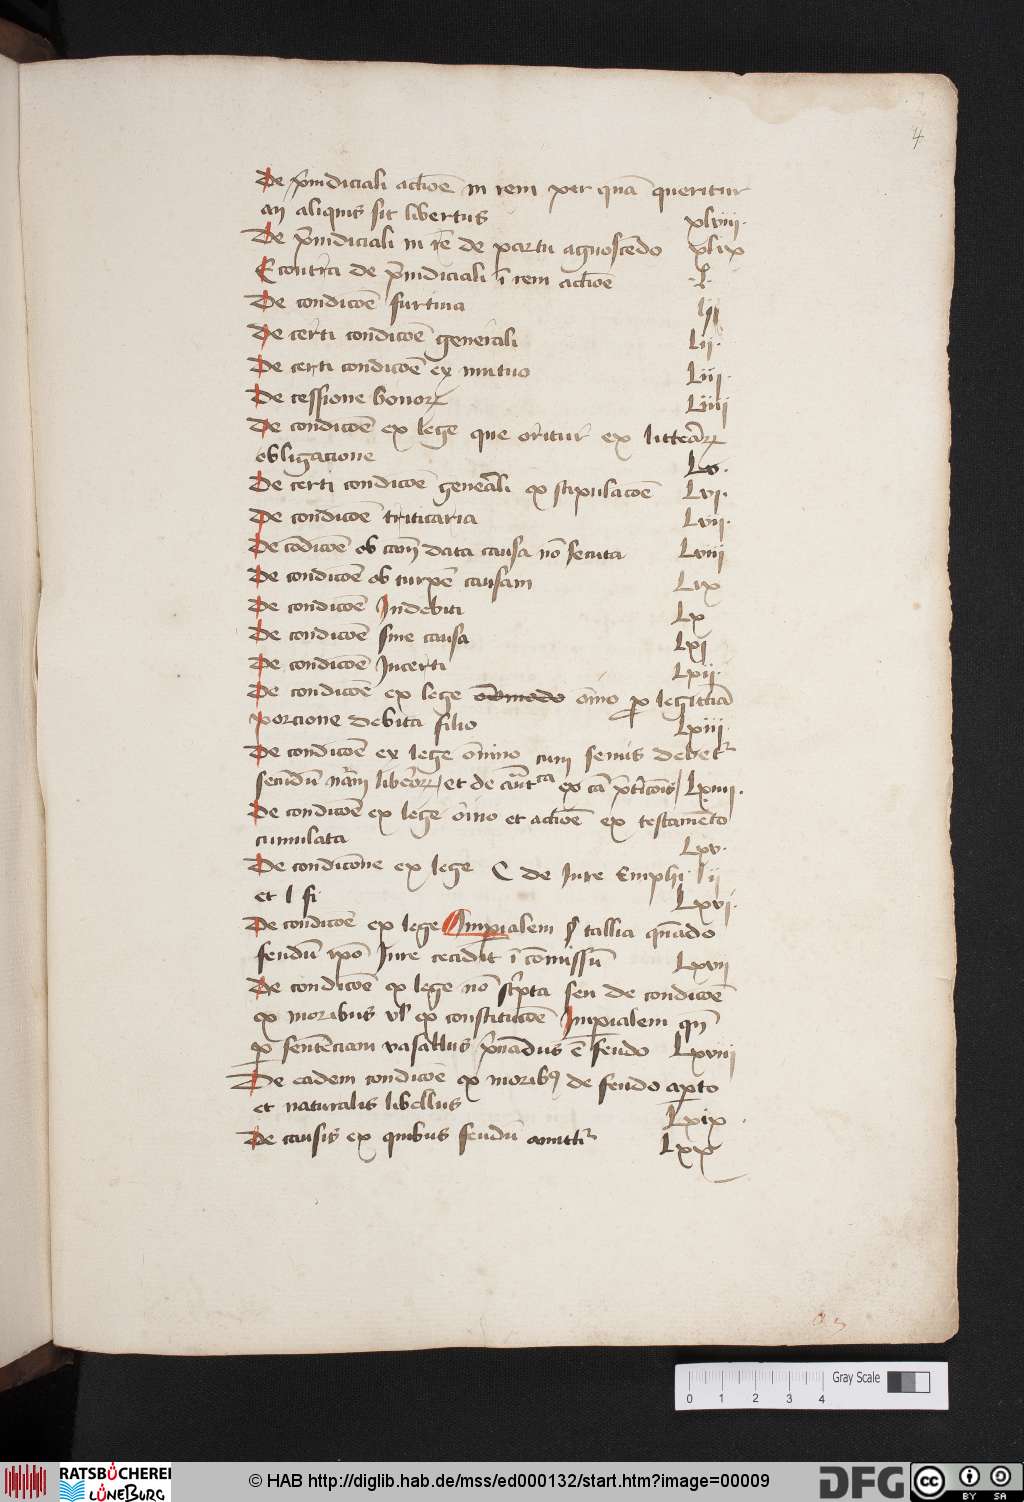 4
De p̄iudiciali actōe in rem per quā queritur
an aliquis sit libertus xlviii.
De p̄iudiciali in rē de partu agnoscēdo xlix
E contra de p̄iudiciali ī rem actōe .L.
De condicōe furtiua lj
De certi condicōe generali Lij.
De certi condicōe ex mutuo Liij.
De cessione bonoꝝ Liiij
De condicōe ex lege que oritur ex litteraꝝ
obligacione Lv.
De certi condicōe generali ex stipulacōe Lvj.
De condicōe triticaria Lvij.
De cōdicōe ob cam̄ data causa nō secuta Lviij
De condicōe ob turpē causam Lix
De condicōe Indebiti Lx
De condicōe sine causa Lxj
De condicōe Incerti Lxij.
De condicōe ex lege oīno ꝓ legittīa
porcione debita filio Lxiij.
De condicōe ex lege oīnino cum semis debet᷑
secūdū nr̄am liberoꝝ et de ex cā Lxiiij.
De condicōe ex lege oīno et actōe ex testamēto
cumulata Lxv.
De condicōne ex lege C de Iure Emphi. l ij
et l fi Lxvj.
De condicōe ex lege Imperialem § tallia quādo
feudū ipō Iure cecidit ī cōmissū Lxvij
De condicōe ex lege nō scripta seu de condicōe
ex moribus vl' ex constitucōe Imperialem qn̄
ꝑ sentenciam vasallus p̄uadus ē feudo Lxviij
De eadem condicōe ex moribꝰ de feudo aperto
et naturalis libellus Lxix.
De causis ex quibus feudū amittit᷑ Lxx
a 3
0 1 2 3 4 Gray Scale
RATSBÜCHEREI LÜNEBURG
© HAB http://diglib.hab.de/mss/ed000132/start.htm?image=00009
DFG
cc BY SA